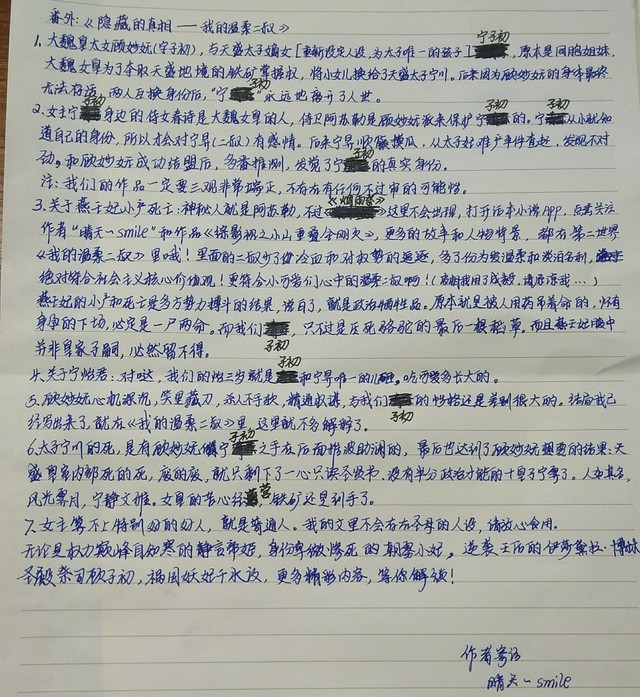 番外:《隐藏的真相——我的温柔二叔》
1.大魏皇太女顾妙妧(字子初),与天盛太子嫡女[重新设定人设,为太子唯一的孩子]宁子初,原本是同胞姐妹,
大魏女皇为了夺取天盛地境的铁矿掌握权,将小女儿换给了天盛太子宁川。后来因为顾妙妧的身体最终
无法存活,两人互换身份后,“宁子初”永远地离开了人世。
2.女主宁子初身边的侍女春诗是大魏女皇的人,侍卫阿苏勒是顾妙妧派来保护宁子初的。宁子初从小就知
道自己的身份,所以才会对宁昇(二叔)有感情。后来宁昇顺藤摸瓜,从太子妃难产事件查起,发现不对
劲。和顾妙妧成功结盟后,多番推测,发觉了宁子初的真实身份。
注:我们的作品一定要三观非常端正,不存在有任何不过审的可能性。
3.关于燕王妃小产死亡:神秘人就是阿苏勒,不过《烟雨客》这里不会出现,打开话本小说App,点击关注
作者“晴天~smile”和作品《综影视之小山重叠金明灭》,更多的故事和人物背景,都在第二世界
《我的温柔二叔》里哦!里面的二叔少了做冷血和对权势的追逐,多了份为爱温柔和淡泊名利,
绝对符合社会主义核心价值观!更符合小可爱们心中的温柔二叔啊!(发明我用了成数,请原谅我…)
燕王妃的小产和死亡是多方势力搏斗的结果,说白了,就是政治牺牲品。原本就是被人用药吊着命的,怀有
身孕的下场,必定是一尸两命。而我们子初,只不过是压死骆驼的最后一根稻草。而且燕王妃腹中
并非皇家子嗣,必然留不得。
4.关于宁怡君:对哒,我们的怡三岁就是子初和宁昇唯一的儿砸。吃可爱多长大的。
5.顾妙妧心机深沉,笑里藏刀,杀人不手软,精通权谋,与我们子初的性格还是差别很大的。结局我已
经写出来了,就在《我的温柔二叔》里,这里就不多解释了。
6.太子宁川的死,是有顾妙妧借宁子初之手在后面推波助澜的,最后也达到了顾妙妧想要的结果:天
盛皇室内部死的死,废的废,就只剩下了一心只读圣贤书,没有半分政治才能的十皇子宁霁了。人如其名,
风光霁月,宁静文雅。女皇的苦心经营,铁矿还是到手了。
7.女主算不上特别好的好人,就是普通人。我的文里不会存在圣母的人设,请放心食用。
无论是权力巅峰自幼寒的静言帝姬,身份卑微惨死的朝雾小妃,逆袭王后的伊莎黛拉·博林
圣殿祭司顾子初,祸国妖妃千水汝,更多精彩内容,等你解锁!
作者寄语
晴天~smile